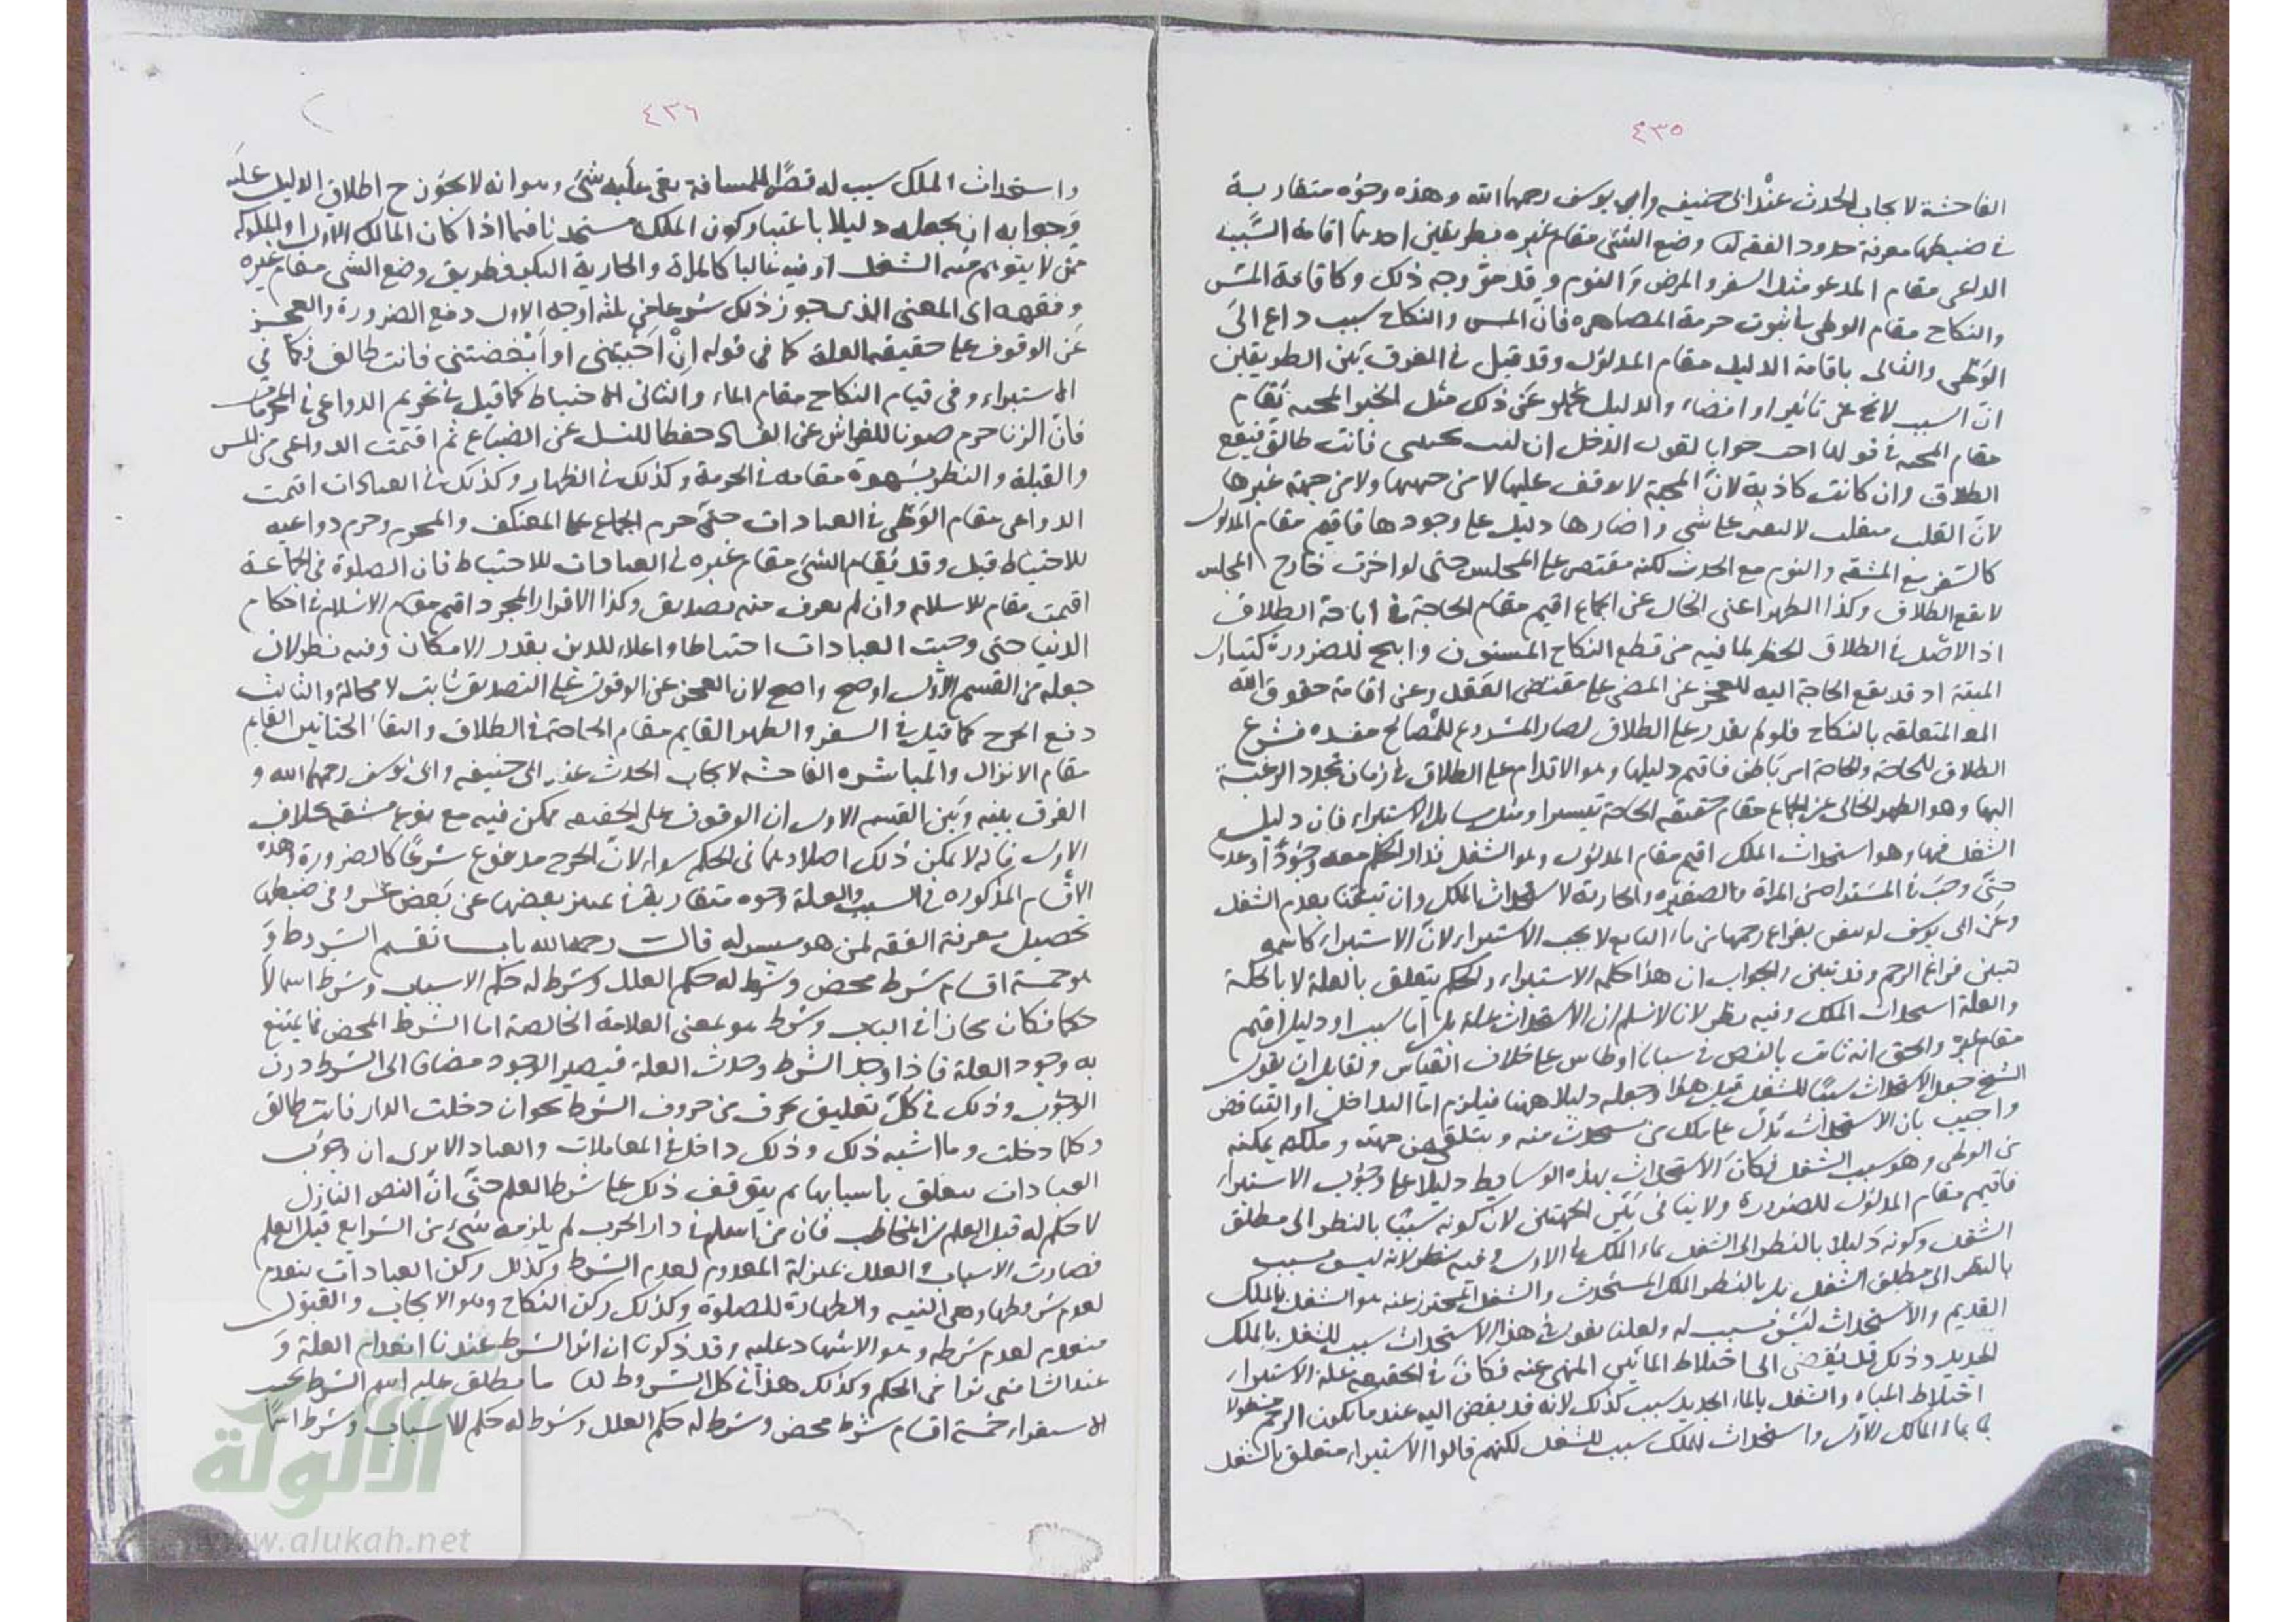 ٤٣٥
الفاحشة لايجاب الحدث عند ابى حنيفه وابي يوسف رحمهما الله وهذه وجوه متقاربة
في ضبطها معرفة حدود الفقه وضع الشئ مقام غيره بطريقين احدهما اقامة السبب
الداعى مقام المدعو مثل السفر والمرض والنوم وقد مر وجه ذلك وكاقامة المس
والنكاح مقام الوطى في ثبوت حرمة المصاهره فان المس والنكاح سبب داع الى
الوطى والثانى باقامة الدليل مقام المدلول وقد قيل في الفرق بين الطريقين
ان السبب لا يخ عن تاثير او افضاء والدليل يخلو عن ذلك مثل الخبر المحبه يقام
مقام المحبه في قولها احب جوابا لقول الرجل ان كنت تحبينى فانت طالق فيقع
الطلاق وان كانت كاذبة لان المحبة لا يوقف عليها لا من جهتها ولا من جهة غيرها
لان القلب متقلب لا يستقر على شى واخبارها دليل على وجودها فاقيم مقام المدلول
كالسفر مع المشقه والنوم مع الحدث لكنه مقتصر على المجلس حتى لو اخبرت خارج المجلس
لا يقع الطلاق وكذا الطهر اعنى الخال عن الجماع اقيم مقام الحاجة في اباحة الطلاق
اذ الاصل في الطلاق الحظر لما فيه من قطع النكاح المسنون وابيح للضرورة كتناول
الميتة اذ قد يقع الحاجة اليه للعجز عن المضى على مقتضى العقد وعن اقامة حقوق الله
المتعلقه بالنكاح فلو لم يقدر على الطلاق لصار المشروع للمصالح مفسده فشرع
الطلاق للحاجة والحاجة امر باطن فاقيم دليلها وهو الاقدام على الطلاق في زمان تجدد الرغبة
اليها وهو الطهر الخالى عن الجماع مقام حقيقه الحاجة تيسيرا ومثل مسايل الاستبراء فان دليل
الشغل فيها وهو استحداث الملك اقيم مقام المدلول وهو الشغل فدار الحكم معه وجودا وعدما
حتى وجب في المستبراة من المراة والصغيره والجارية لاستحداث الملك وان تيقنا بعدم الشغل
وعن ابى يوسف لو تيقن بفراغ رحمها من ماء البايع لا يجب الاستبراء لان الاستبراء كاسمه
لتبين فراغ الرحم وقد تبين والجواب ان هذا حكمة الاستبراء والحكم يتعلق بالعلة لا بالحكمة
والعلة استحداث الملك وفيه نظر لانا لا نسلم ان الاستحداث علة بل اما سبب او دليل اقيم
مقام غيره والحق انه ثابت بالنص في سبايا اوطاس على خلاف القياس ولقايل ان يقول
الشيخ جعل الاستحداث سببا للشغل قبل هذا وجعله دليلا ههنا فيلزم اما التداخل او التناقض
واجيب بان الاستحداث يدل على ملك من استحدث منه ويتلقى من جهته وملكه يمكنه
من الوطى وهو سبب الشغل فكان الاستحداث بهذه الوسايط دليلا على وجوب الاستبراء
فاقيم مقام المدلول للضرورة ولا ينافى بين الجهتين لان كونه سببا بالنظر الى مطلق
الشغل وكونه دليلا بالنظر الى الشغل بماء المالك الاول وفيه نظر لانه ليس بسبب
بالنظر الى مطلق الشغل بل بالنظر الملك المستحدث والشغل المحترز عنه هو الشغل بالملك
القديم والاستحداث ليس بسبب له ولعلنا نقول في هذا الاستحداث سبب للشغل بالملك
الجديد وذلك قد يفضى الى اختلاط المائين المنهى عنه فكان في الحقيقه علة الاستبراء
اختلاط المياه والشغل بالماء الجديد سبب كذلك لانه قد يفضى اليه عند ما يكون الرحم مشغولا
بماء المالك الاول واستحداث الملك سبب للشغل لكنهم قالوا الاستبراء متعلق بالشغل
٤٣٦
واستحداث الملك سبب له قصرا للمسافة بقى عليه شئ وهو انه لا يجوز ح اطلاق الدليل عليه
وجوابه ان يجعله دليلا باعتبار كون الملك مستحدثا فيما اذا كان المالك الاول او المملوكه
ممن لا يتوهم منه الشغل او فيه غالبا كالمراة والجارية البكر فطريق وضع الشى مقام غيره
وفقهه اى المعنى الذى جوز ذلك شرعا ثلثه اوجه الاول دفع الضرورة والعجز
عن الوقوف على حقيقه العلة كما في قوله ان احببتنى او ابغضتنى فانت طالق وكما في
الاستبراء وفى قيام النكاح مقام الماء والثانى الاحتياط كما قيل في تحريم الدواعي في الحرمات
فان الزنا حرم صونا للفراش عن الفساد حفظا للنسل عن الضياع ثم اقيمت الدواعى من المس
والقبلة والنظر بشهوة مقامه في الحرمة وكذلك في الظهار وكذلك في العبادات اقيمت
الدواعى مقام الوطى في العبادات حتى حرم الجماع على المعتكف والمحرم وحرم دواعيه
للاحتياط قيل وقد يقام الشئ مقام غيره في العبادات للاحتياط فان الصلوة في الجماعة
اقيمت مقام الاسلام وان لم يعرف منه تصديق وكذا الاقرار المجرد اقيم مقام الاسلام في احكام
الدنيا حتى وجبت العبادات احتياطا واعلاء للدين بقدر الامكان وفيه نظر لان
جعله من القسم الاول اوضح واصح لان العجز عن الوقوف على التصديق ثابت لا محالة والثالث
دفع الحرج كما قيل في السفر والطهر القايم مقام الحاجة في الطلاق والتقاء الختانين القايم
مقام الانزال والمباشره الفاحشه لايجاب الحدث عند ابى حنيفه وابى يوسف رحمهما الله و
الفرق بينه وبين القسم الاول ان الوقوف على الحقيقه ممكن فيه مع نوع مشقه بخلاف
الاول فانه لا يمكن ذلك اصلا وهما في الحكم سواء لان الحرج مدفوع شرعا كالضرورة وهذه
الاقسام المذكوره في السبب والعلة وجوه متقاربة في تميز بعضها عن بعض عسر وفى ضبطها
تحصيل معرفة الفقه لمن هو ميسر له قالت رحمه الله باب تقسيم الشروط و
هو خمسة اقسام شرط محض وشرط له حكم العلل وشرط له حكم الاسباب وشرط اسما لا
حكما فكان مجازا في الباب وشرط هو بمعنى العلامة الخالصة اما الشرط المحض فما يمتنع
به وجود العلة فاذا وجد الشرط وجدت العلة فيصير الوجود مضافا الى الشرط دون
الوجوب وذلك في كل تعليق بحرف من حروف الشرط نحو ان دخلت الدار فانت طالق
وكلما دخلت وما اشبه ذلك وذلك داخل في المعاملات والعبادات الا يرى ان وجوب
العبادات يتعلق باسبابها ثم يتوقف ذلك على شرط العلم حتى ان النص النازل
لا حكم له قبل العلم من المخاطب فان من اسلم في دار الحرب لم يلزمه شئ من الشرايع قبل العلم
فصارت الاسباب والعلل بمنزلة المعدوم لعدم الشرط وكذلك ركن العبادات ينعدم
لعدم شروطها وهى النيه والطهارة للصلوة وكذلك ركن النكاح وهو الايجاب والقبول
منعدم لعدم شرطه وهو الاشهاد عليه وقد ذكرنا ان اثر الشرط عندنا انعدام العلة و
عند الشافعى تراخى الحكم وكذلك هذا في كل الشروط لها ما يطلق عليه اسم الشرط بحسب
الاستقراء خمسة اقسام شرط محض وشرط له حكم العلل وشرط له حكم الاسباب وشرط اسما
الألوكة
www.alukah.net